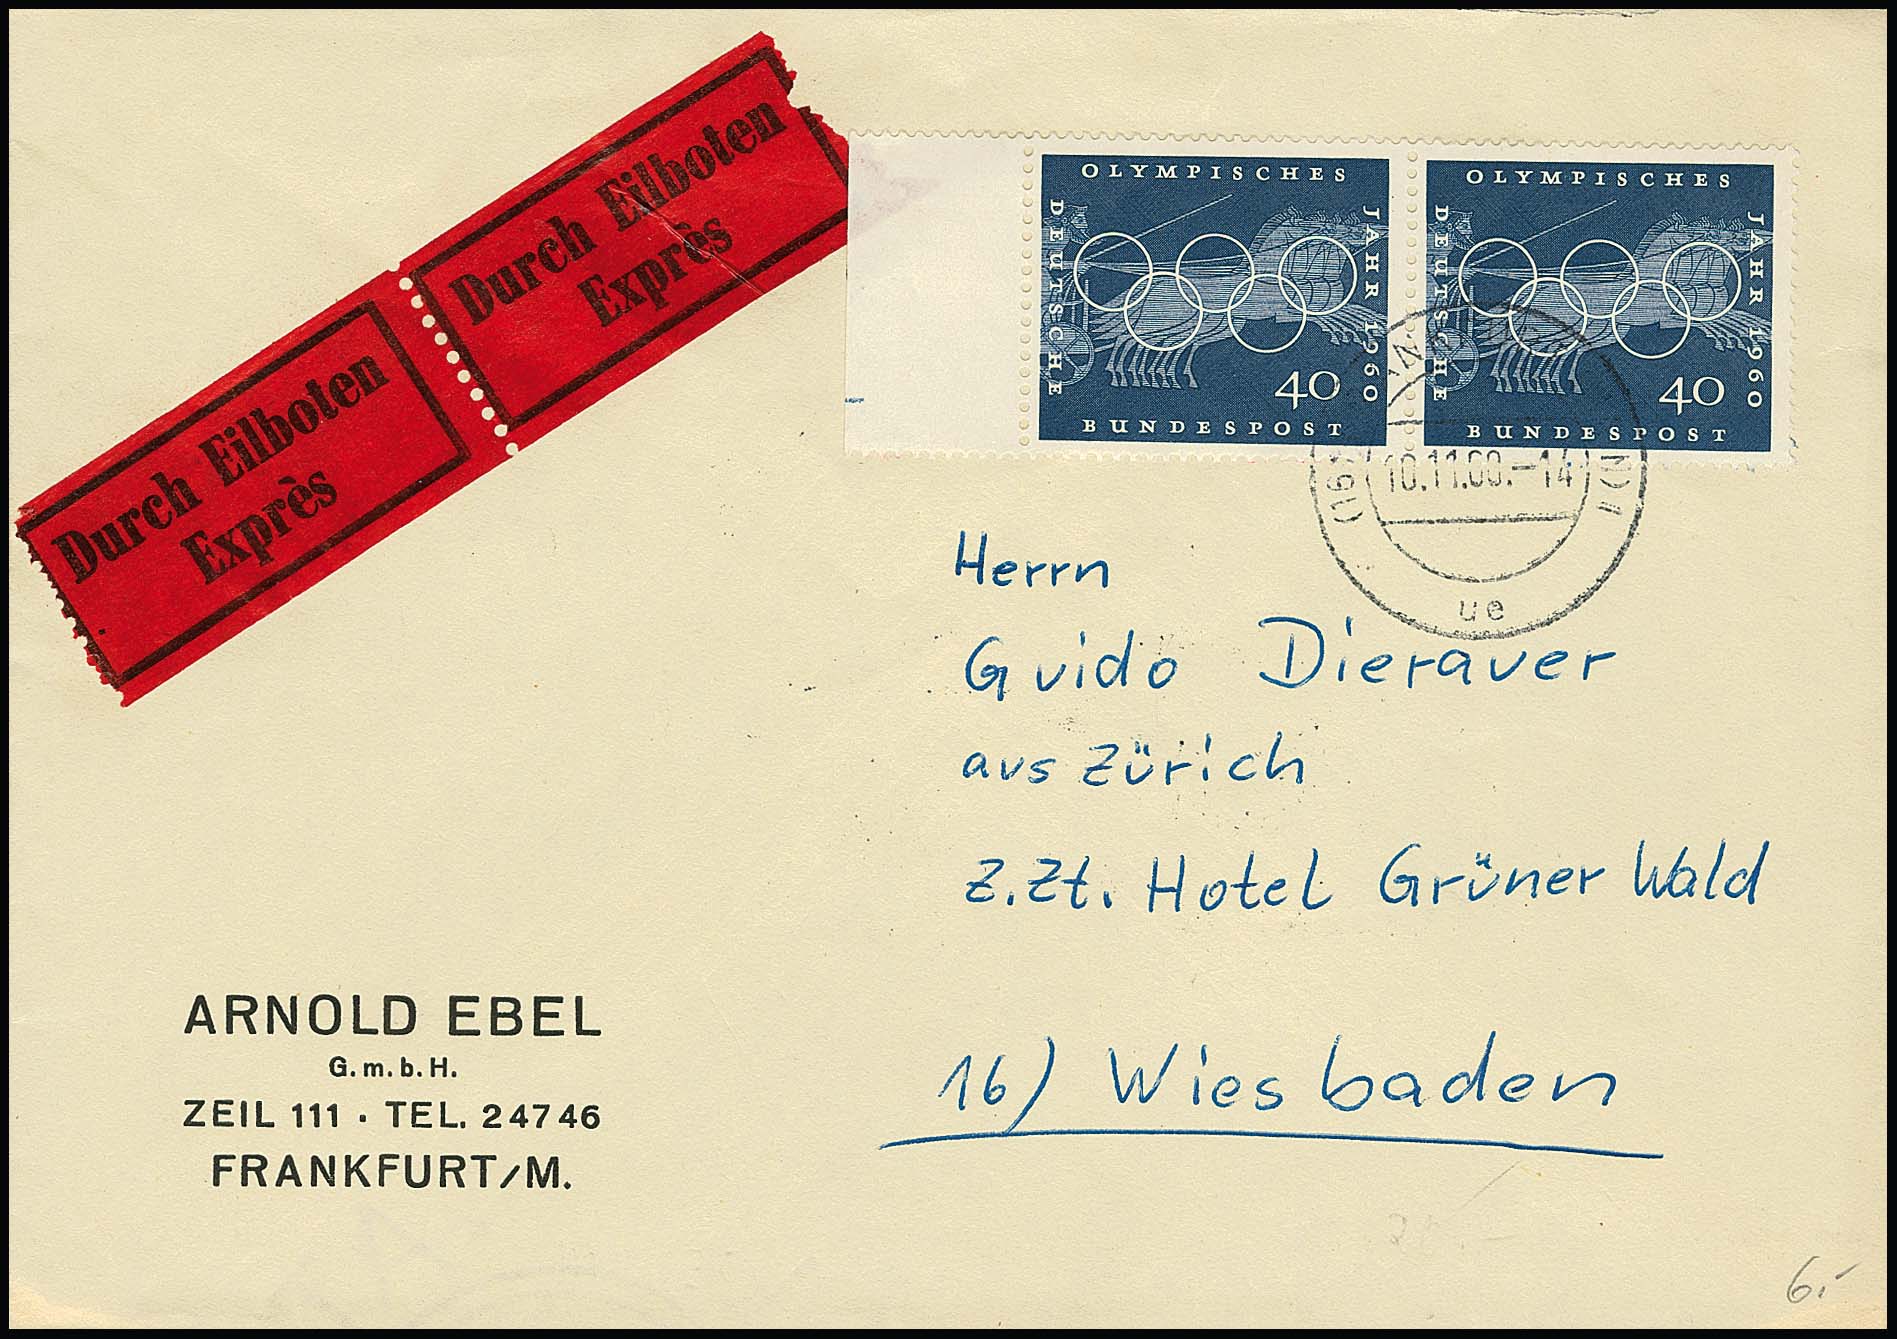 Durch Eilboten
Exprès
Durch Eilboten
Exprès
OLYMPISCHES
JAHR 1960
DEUTSCHE
BUNDESPOST
40
OLYMPISCHES
JAHR 1960
DEUTSCHE
BUNDESPOST
40
10.11.60.-14
ue
Herrn
Guido Dieraver
aus Zürich
z.Zt. Hotel Grüner Wald
16) Wiesbaden
ARNOLD EBEL
G.m.b.H.
ZEIL 111 · TEL. 24746
FRANKFURT/M.
6.-